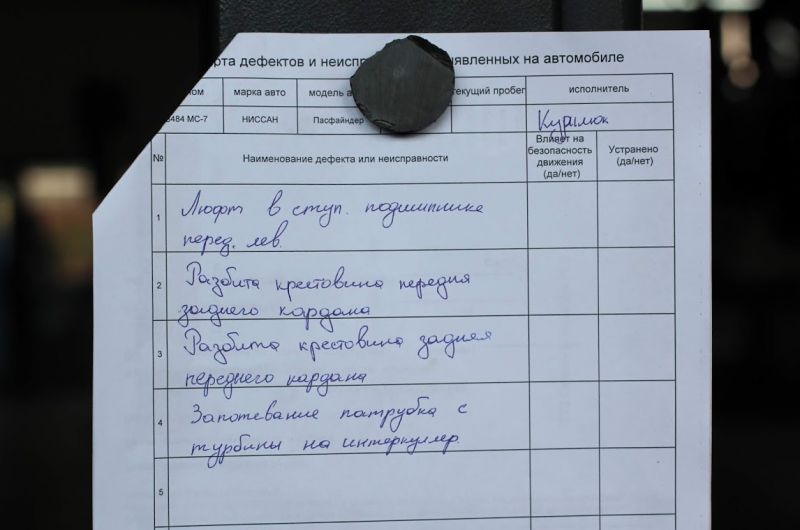 рта дефектов и неиспр явленных на автомобиле
ном марка авто модель а текущий пробег исполнитель
8484 МС-7 НИССАН Пасфайндер Курилюк
№ Наименование дефекта или неисправности Влияет на безопасность движения (да/нет) Устранено (да/нет)
1 Люфт в ступ. подшипнике
перед. лев.
2 Разбита крестовина передня
заднего кардана
3 Разбита крестовина задняя
переднего кардана
4 Запотевание патрубка с
турбины на интеркуллер.
5